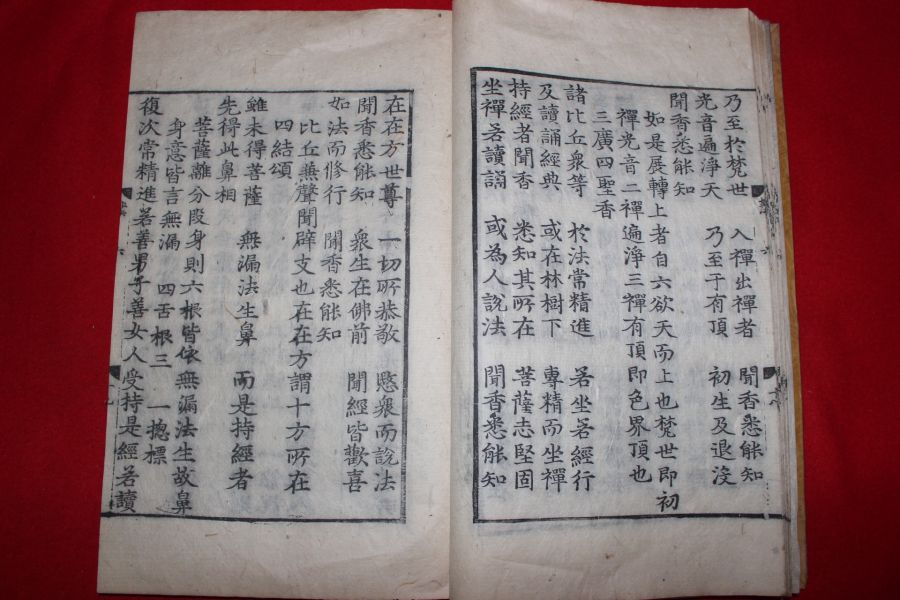 乃至於梵世 入禪出禪者 聞香悉能知
光音遍淨天 乃至于有頂 初生及退沒
聞香悉能知
如是展轉上者自六欲天而上也梵世即初
禪光音二禪遍淨三禪有頂即色界頂也
三廣四聖香
諸比丘衆等 於法常精進 若坐若經行
及讀誦經典 或在林樹下 專精而坐禪
持經者聞香 悉知其所在 菩薩志堅固
坐禪若讀誦 或為人說法 聞香悉能知
在在方世尊 一切所恭敬 愍衆而說法
聞香悉能知 衆生在佛前 聞經皆歡喜
如法而修行 聞香悉能知
比丘兼聲聞辟支也在在方謂十方所在
四結頌
雖未得菩薩 無漏法生鼻 而是持經者
先得此鼻相
菩薩離分段身則六根皆依無漏法生故鼻
身意皆言無漏 四舌根三 一摠標
復次常精進若善男子善女人受持是經若讀